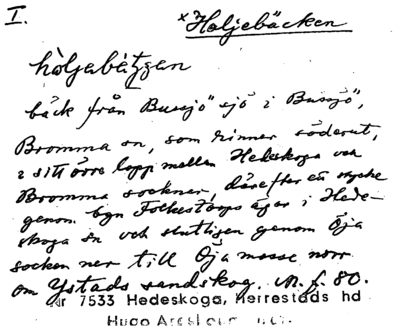 I.
x "Holjebäcken
höljabätzen
bäck från Bussjö sjö i Bussjö,
Bromma sn, som rinner söderut,
i sitt övre lopp mellan Hedeskoga och
Bromma socknar, därefter ett stycke
genom byn Folkestorps ägor i Hede-
skoga sn och slutligen genom Öja
socken ner till Öja mosse norr
om Ystads sandskog. M. f. 80.
Nr 7533 Hedeskoga, Herrestads hd
Hugo